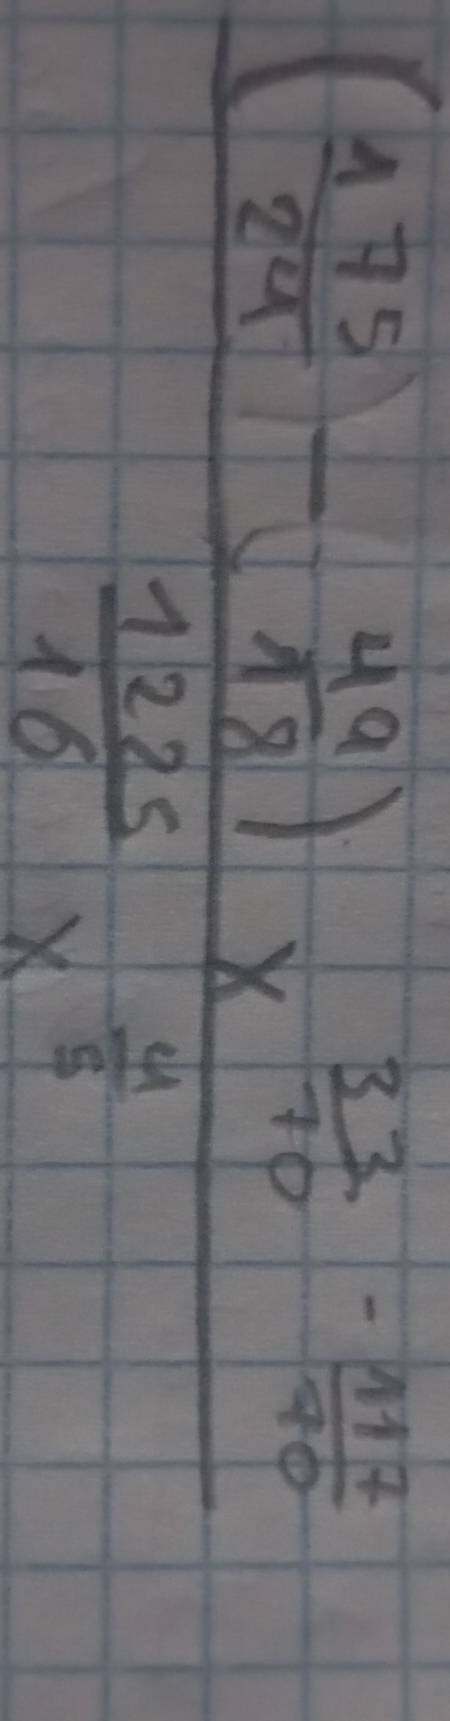 (175/24) - (49/18) x 33/70 - 117/70
1225/16 x 4/5